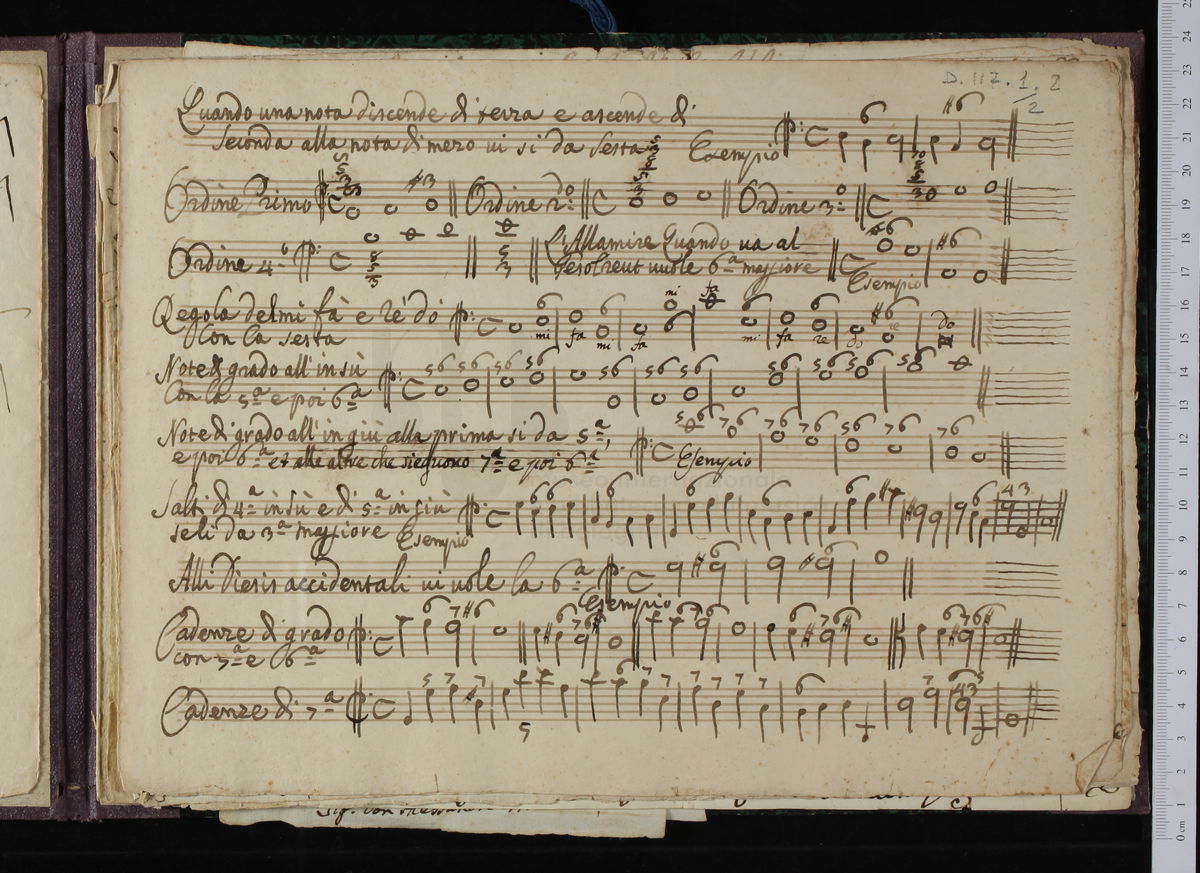 D. 117. 1. 2
2
Quando una nota discende di terza e ascende di
seconda alla nota di mezo vi si da sesta Esempio
Ordine Primo Ordine 2º: Ordine 3º:
Ordine 4º L'Allamire Quando va al
Gesolreut vuole 6ª maggiore Esempio
Regola del mi fà e rè dò
Con la sesta
mi fa mi fa mi fa mi fa re do re do
Note di grado all'in sù
Con la 5ª e poi 6ª
Note di grado all'in giù alla prima si da 5ª,
e poi 6ª et alle altre che sieguono 7ª e poi 6ª Esempio
Salti di 4ª in sù e di 5ª in giù
se li da 3ª maggiore Esempio
Alli Diesis accidentali vi vole la 6ª
Esempio
Cadenze di grado
con 7ª e 6ª
Cadenze di 7ª